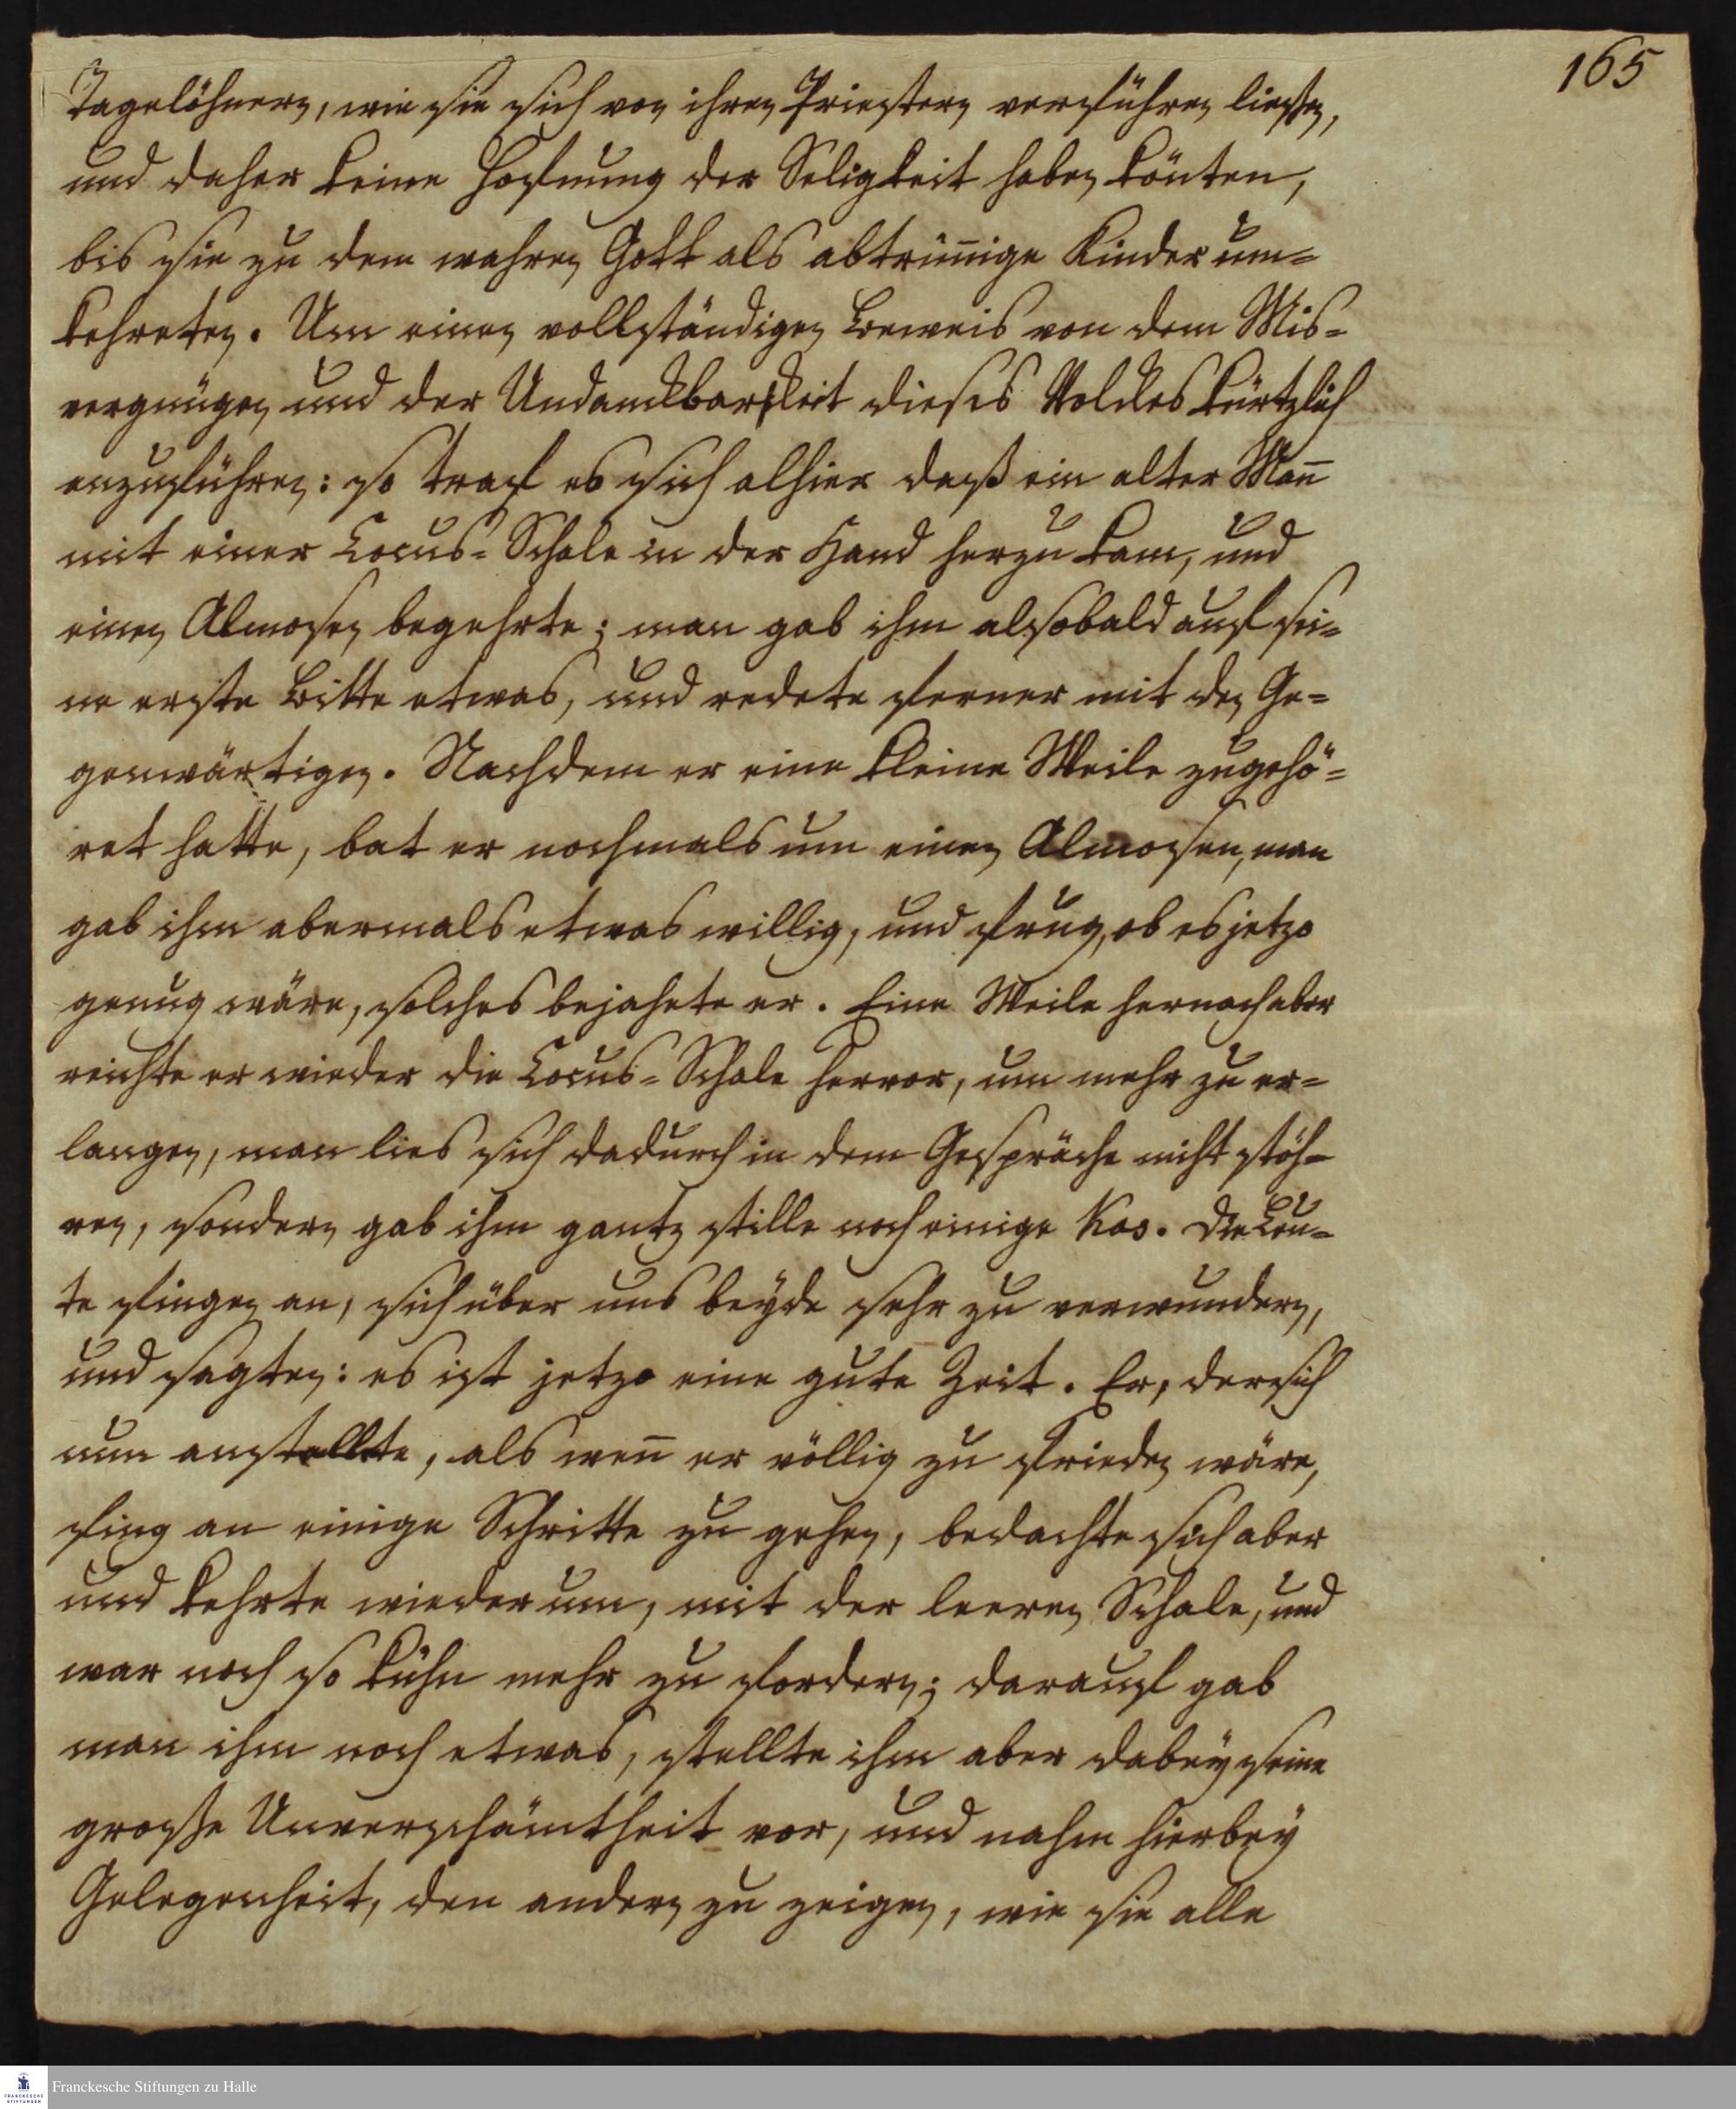 165
Tagelöhnern, wie sie sich von ihren Priestern verführen liessen,
und daher keine Hofnung der Seligkeit haben könten,
bis sie zu dem wahren Gott als abtrin̄ige Kinder um-
kehreten. Um einen vollständigen Beweis von dem Mis-
vergnügen und der Undanckbarkeit dieses Volckes kürtzlich
anzuführen: so traf es sich alhier daß ein alter Man̄
mit einer Cocus-Schale in der Hand herzu kam, und
einen Almosen begehrte; man gab ihm alsobald auf sei-
ne erste Bitte etwas, und redete ferner mit den Ge-
genwärtigen. Nachdem er eine kleine Weile zugehö-
ret hatte, bat er nochmals um einen Almosen, man
gab ihm abermals etwas willig, und frug, ob es jetzo
genug wäre, solches bejahete er. Eine Weile hernach aber
reichte er wieder die Cocus-Schale hervor, um mehr zu er-
langen, man lies sich dadurch in dem Gespräche nicht stöh-
ren, sondern gab ihm gantz stille noch einige Kas. Die Leu-
te fingen an, sich über uns beyde sehr zu verwundern,
und sagten: es ist jetzo eine gute Zeit. Er, der sich
nun anstellte, als wen̄ er völlig zu frieden wäre,
fing an einige Schritte zu gehen, bedachte sich aber
und kehrte wieder um, mit der leeren Schale, und
war noch so kühn mehr zu fordern; darauf gab
man ihm noch etwas, stellte ihm aber dabey seine
grosse Unverschämtheit vor, und nahm hierbey
Gelegenheit, den andern zu zeigen, wie sie alle
FRANCKESCHE
STIFTUNGEN
Franckesche Stiftungen zu Halle